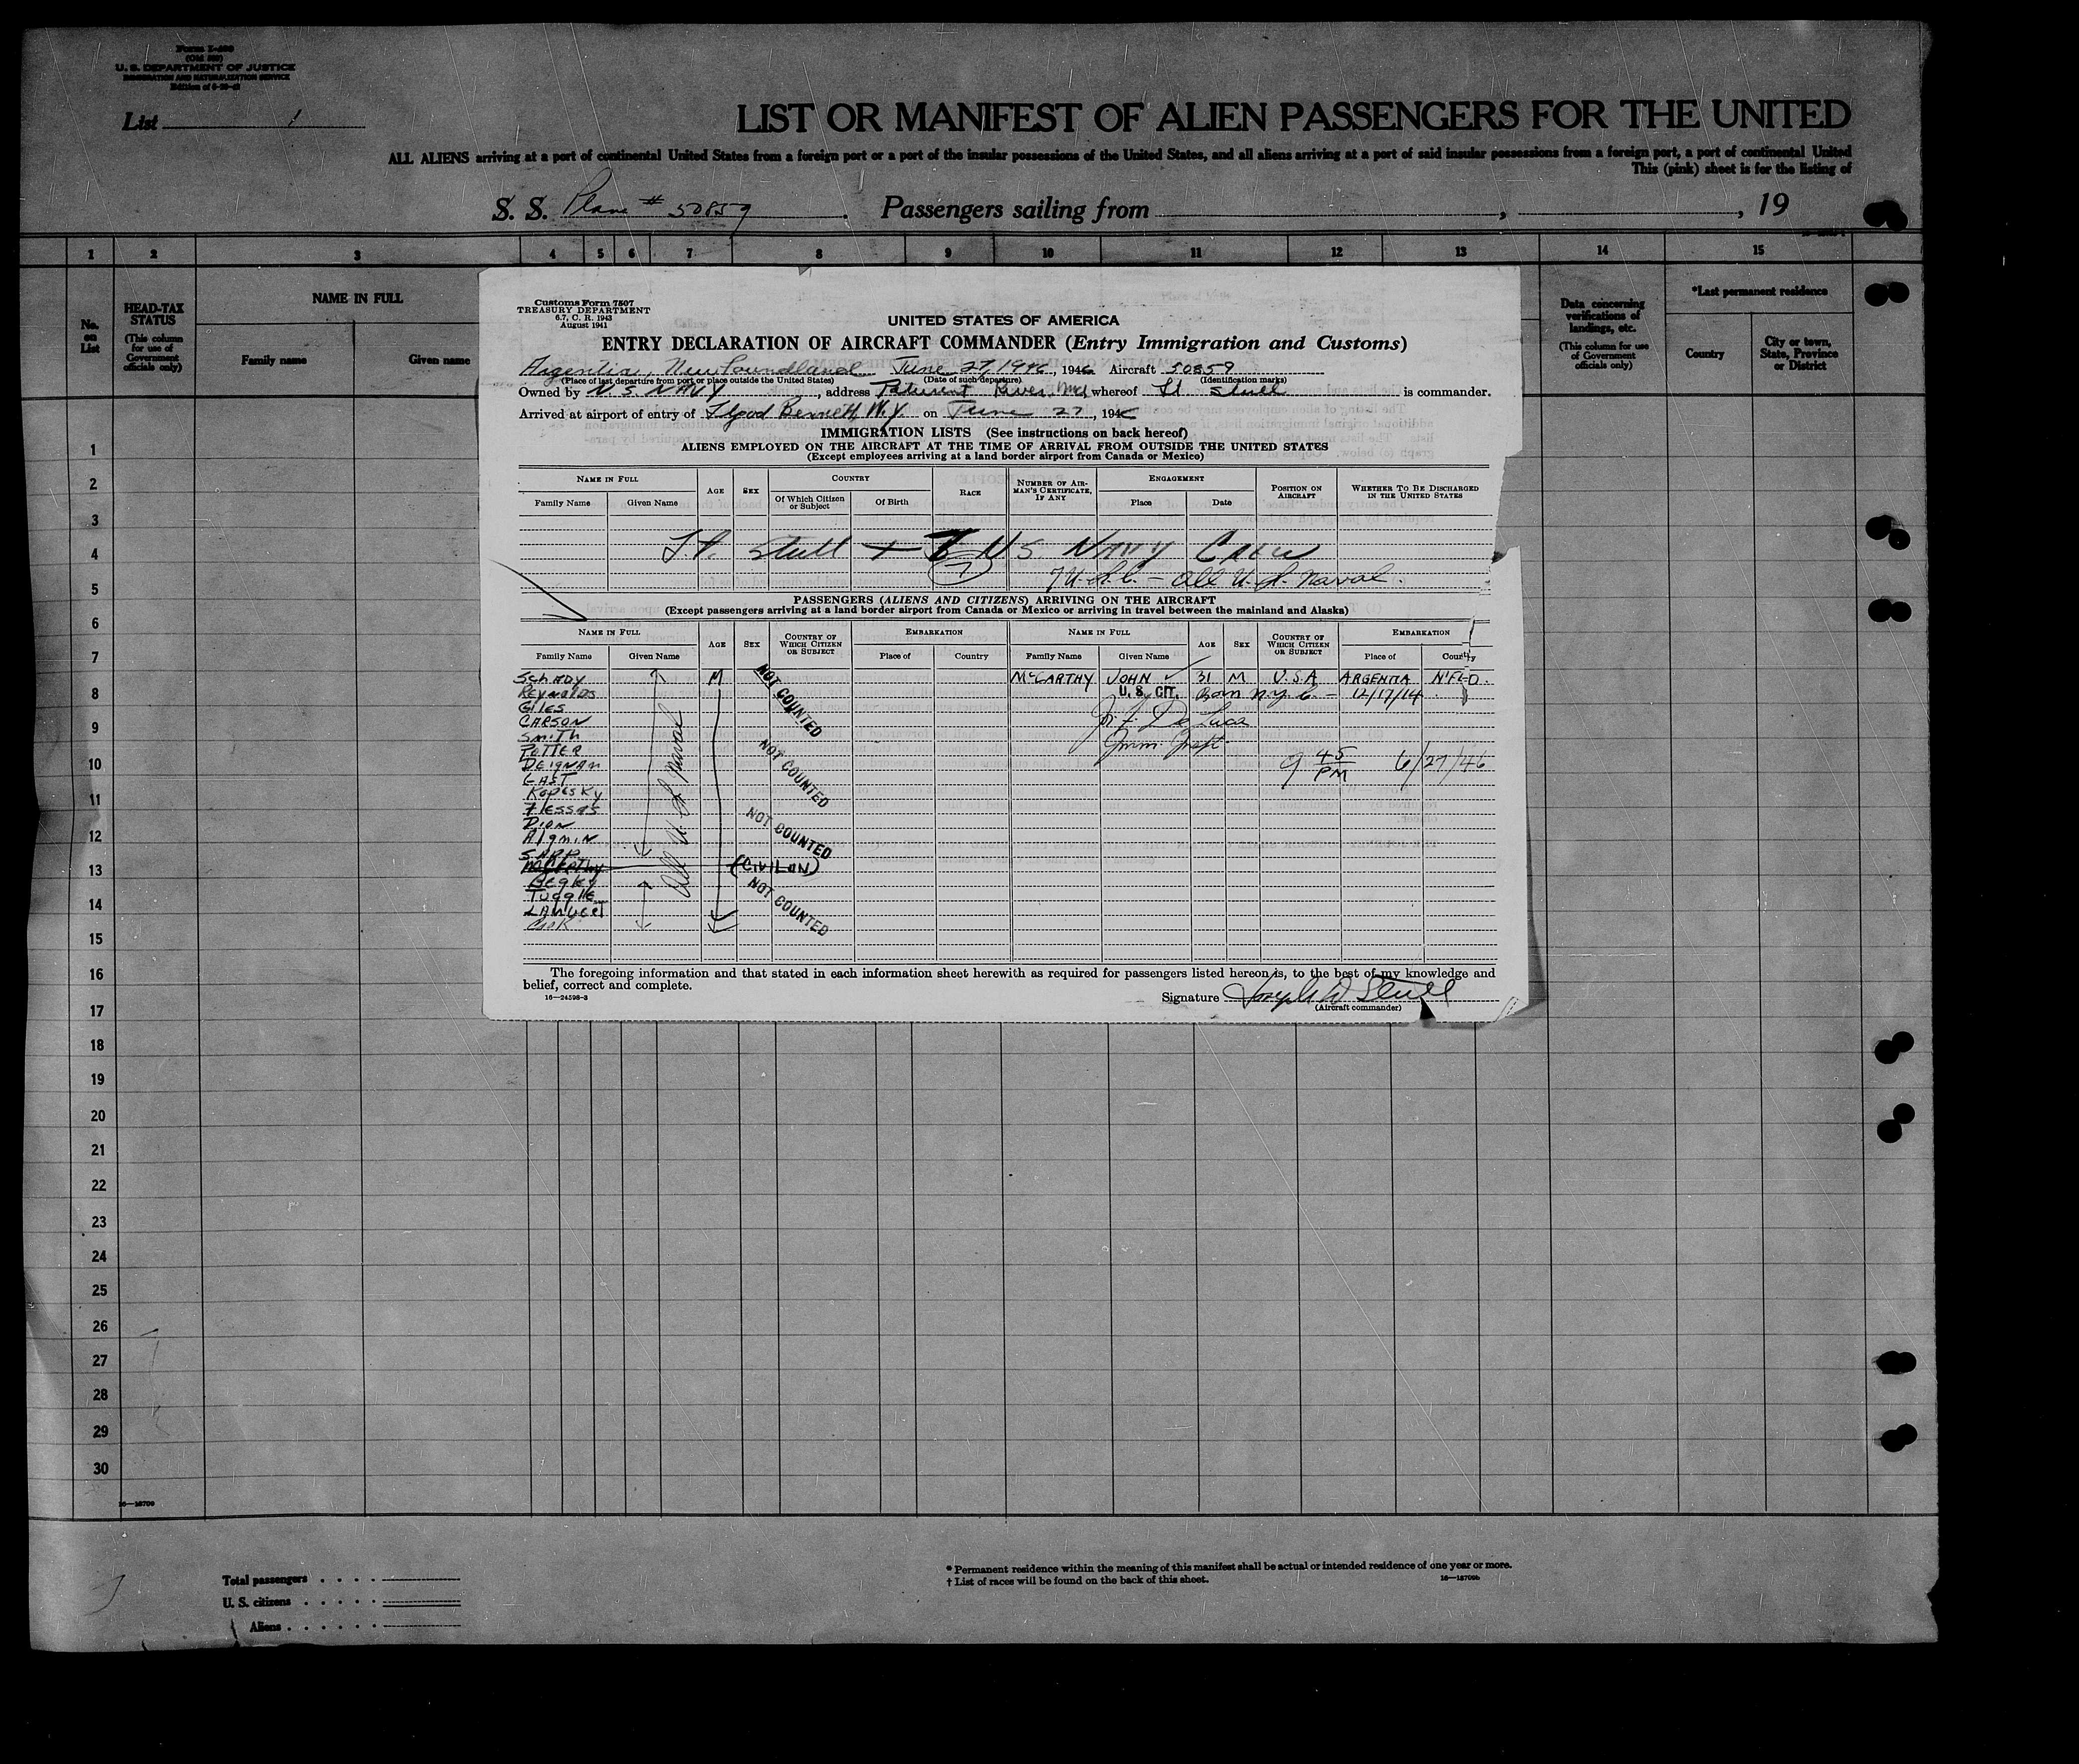 Form I-466
(Old 500)
U. S. DEPARTMENT OF JUSTICE
IMMIGRATION AND NATURALIZATION SERVICE
List 1
LIST OR MANIFEST OF ALIEN PASSENGERS FOR THE UNITED
ALL ALIENS arriving at a port of continental United States from a foreign port or a port of the insular possessions of the United States, and all aliens arriving at a port of said insular possessions from a foreign port, a port of continental United
This (pink) sheet is for the listing of
S. S. Plane # 50859 . Passengers sailing from , , 19
1 2 3 4 5 6 7 8 9 10 11 12 13 14 15
No. on List
HEAD-TAX STATUS
(This column for use of Government officials only)
NAME IN FULL
Family name Given name
Data concerning verifications of landings, etc.
(This column for use of Government officials only)
*Last permanent residence
Country
City or town, State, Province or District
Customs Form 7507
TREASURY DEPARTMENT
6.7, C. R. 1943
August 1941
UNITED STATES OF AMERICA
ENTRY DECLARATION OF AIRCRAFT COMMANDER (Entry Immigration and Customs)
Argentia, Newfoundland June 27, 1946, 1946 Aircraft 50859
(Place of last departure from port or place outside the United States) (Date of such departure) (Identification marks)
Owned by U. S. NAVY, address Patuxent River, Md whereof Lt Stull is commander.
Arrived at airport of entry of Floyd Bennett N.Y. on June 27, 194
IMMIGRATION LISTS (See instructions on back hereof)
ALIENS EMPLOYED ON THE AIRCRAFT AT THE TIME OF ARRIVAL FROM OUTSIDE THE UNITED STATES
(Except employees arriving at a land border airport from Canada or Mexico)
NAME IN FULL
Family Name Given Name
AGE
SEX
COUNTRY
Of Which Citizen or Subject
Of Birth
RACE
NUMBER OF AIRMAN'S CERTIFICATE, IF ANY
ENGAGEMENT
Place Date
POSITION ON AIRCRAFT
WHETHER TO BE DISCHARGED IN THE UNITED STATES
Lt. Stull + 7 U S NAVY Crew
7 U.S.C. - all U.S. Naval.
PASSENGERS (ALIENS AND CITIZENS) ARRIVING ON THE AIRCRAFT
(Except passengers arriving at a land border airport from Canada or Mexico or arriving in travel between the mainland and Alaska)
NAME IN FULL
Family Name Given Name
AGE
SEX
COUNTRY OF WHICH CITIZEN OR SUBJECT
EMBARKATION
Place of Country
NAME IN FULL
Family Name Given Name
AGE
SEX
COUNTRY OF WHICH CITIZEN OR SUBJECT
EMBARKATION
Place of Country
McCARTHY JOHN 31 M U.S.A ARGENTIA N'FLD.
U. S. CIT. Born N.Y.C. - 12/17/14
De Luca
Imm. Inspt.
9 45 PM 6/27/46
M
Reynolds
Giles
CARSON
Smith
POTTER
Deignan
GAST
Kopesky
Flessas
Dion
Algmin
SAPP
McCarthy (CIVILAN)
Begky
Tuggle
Cook
All U. S. Naval
NOT COUNTED
NOT COUNTED
NOT COUNTED
NOT COUNTED
The foregoing information and that stated in each information sheet herewith as required for passengers listed hereon is, to the best of my knowledge and
belief, correct and complete.
16—24598-3
Signature Joseph W Stull
(Aircraft commander)
1
2
3
4
5
6
7
8
9
10
11
12
13
14
15
16
17
18
19
20
21
22
23
24
25
26
27
28
29
30
16—18709
Total passengers
U. S. citizens
Aliens
* Permanent residence within the meaning of this manifest shall be actual or intended residence of one year or more.
† List of races will be found on the back of this sheet.
16—18709b